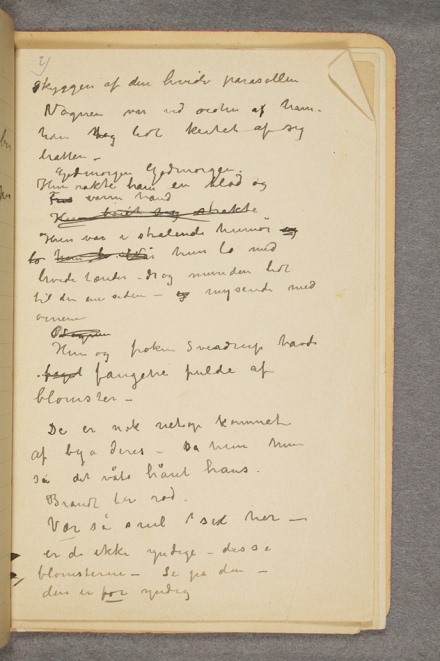 skyggen af den hvide parasollen
Vognen var ved                af ham.
han      lidt                  af sig
hatten –
Godmorgen Godmorgen.
Hun rakte ham en blød og
varm hånd
Hun            strakte
Hun var i strålende humør og
hun lo med
hvide tænder – drog munden lidt
til den ene siden – og mysende med
øinene
Hun og frøken Sveadrup havde
fangene fulde af
blomster –
De er nok netop kommet
af       deres – Da hun
så det våte håret hans.
Brandt ler rød.
Vær så snil       her –
er de ikke yndige – disse
blomsterne – Se på den –
den er for yndig